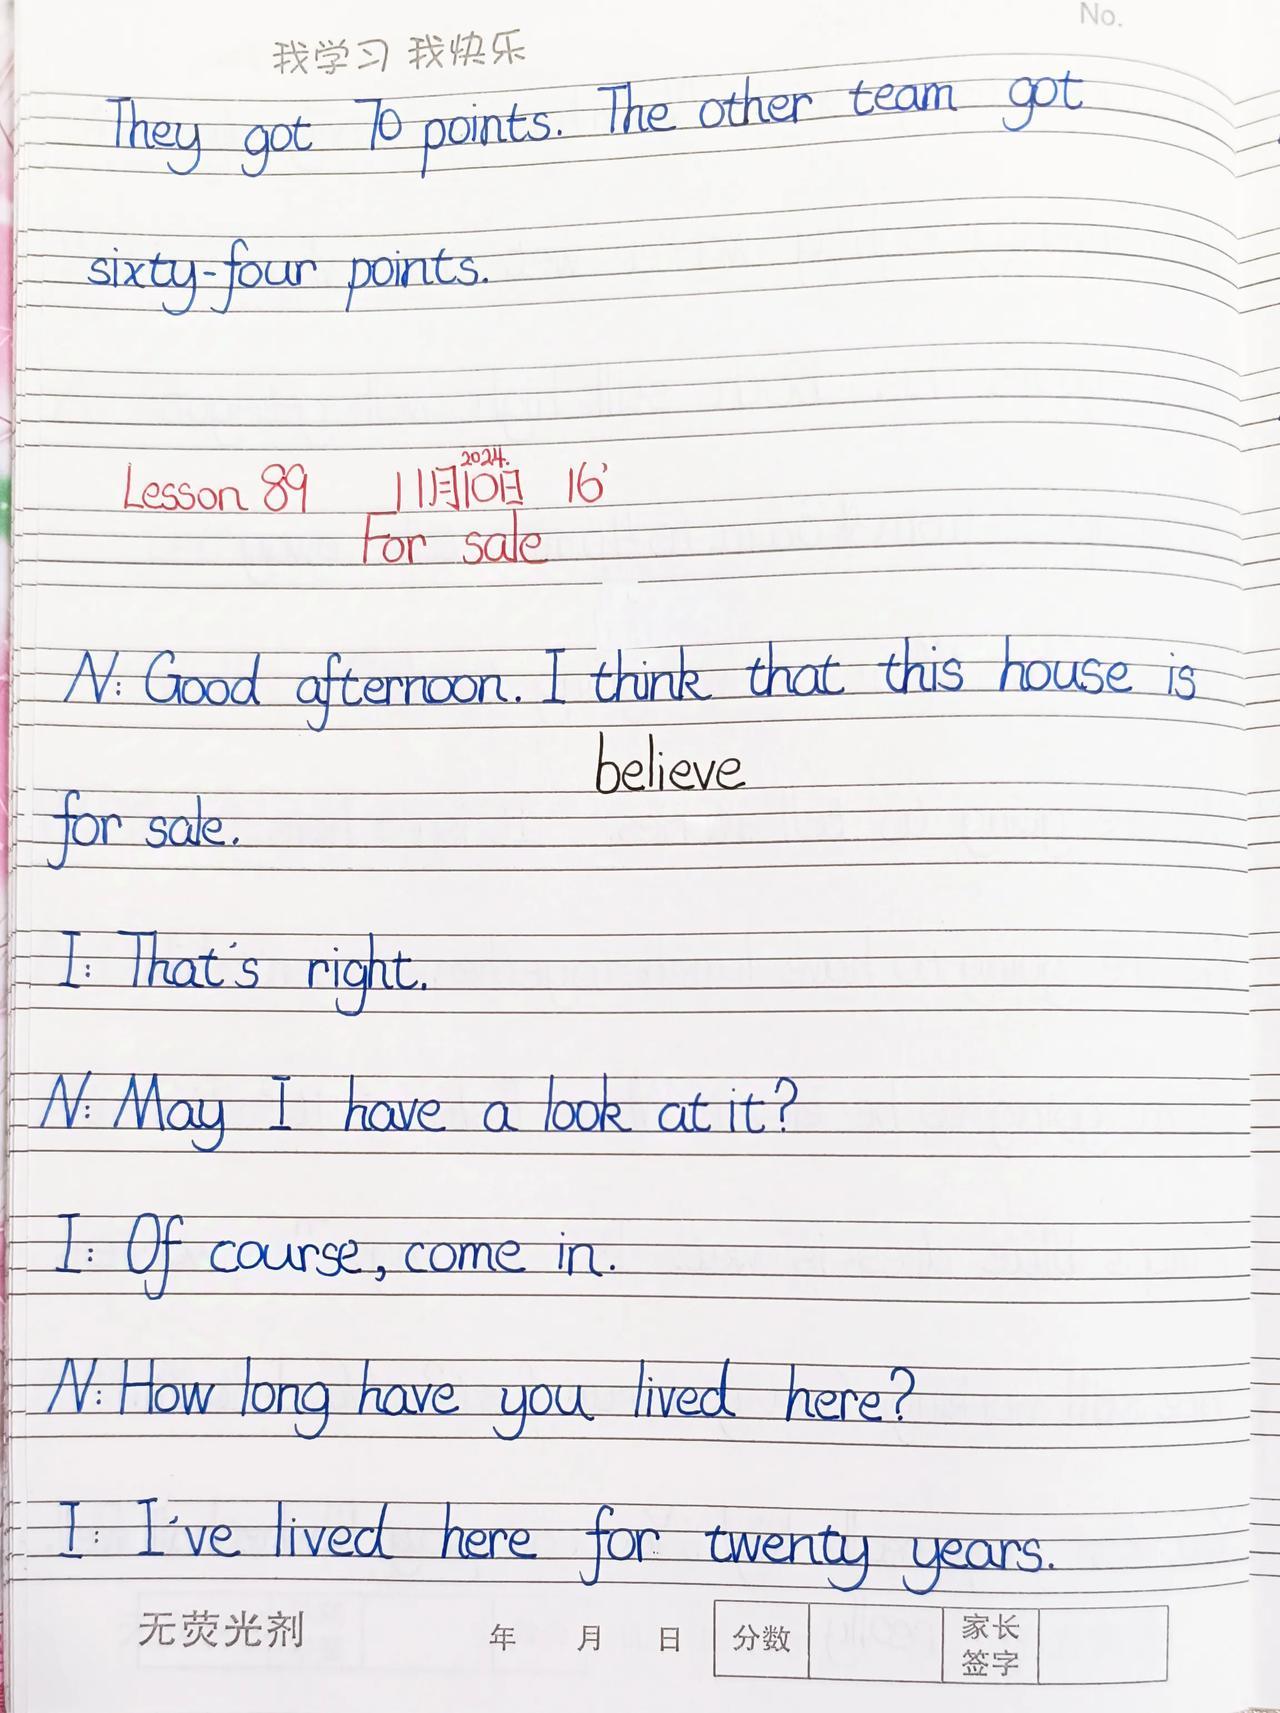 No.
我学习 我快乐
They got 70 points. The other team got
sixty-four points.
Lesson 89 11月10日 2024. 16'
For sale
N: Good afternoon. I think that this house is
believe
for sale.
I: That's right.
N: May I have a look at it?
I: Of course, come in.
N: How long have you lived here?
I: I've lived here for twenty years.
无荧光剂 年 月 日 分数 家长签字